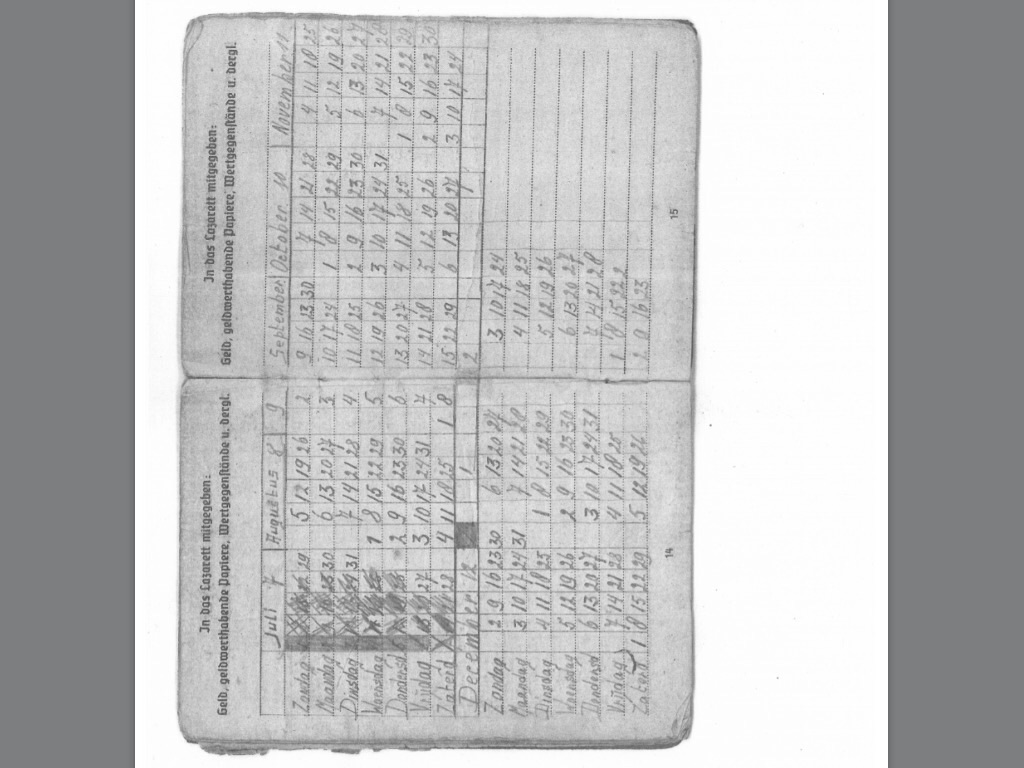 In das Lazarett mitgegeben:
Geld, geldwerthabende Papiere, Wertgegenstände u. dergl.
Juli 7 Augustus 8 9
Zondag 29 5 12 19 26 2
Maandag 30 6 13 20 27 3
Dinsdag 31 7 14 21 28 4
Woensdag 1 8 15 22 29 5
Donderd 2 9 16 23 30 6
Vrijdag 27 3 10 17 24 31 7
Zaterd 28 4 11 18 25 1 8
December 12 1
Zondag 2 9 16 23 30 6 13 20 27
Maandag 3 10 17 24 31 7 14 21 28
Dinsdag 4 11 18 25 1 8 15 22 29
Woensdag 5 12 19 26 2 9 16 23 30
Donderd 6 13 20 27 3 10 17 24 31
Vrijdag 7 14 21 28 4 11 18 25
Zaterd 1 8 15 22 29 5 12 19 26
14
In das Lazarett mitgegeben:
Geld, geldwerthabende Papiere, Wertgegenstände u. dergl.
September October 10 November 11
9 16 23 30 7 14 21 28 4 11 18 25
10 17 24 1 8 15 22 29 5 12 19 26
11 18 25 2 9 16 23 30 6 13 20 27
12 19 26 3 10 17 24 31 7 14 21 28
13 20 27 4 11 18 25 1 8 15 22 29
14 21 28 5 12 19 26 2 9 16 23 30
15 22 29 6 13 20 27 3 10 17 24
2
3 10 17 24
4 11 18 25
5 12 19 26
6 13 20 27
7 14 21 28
1 8 15 22
2 9 16 23
15